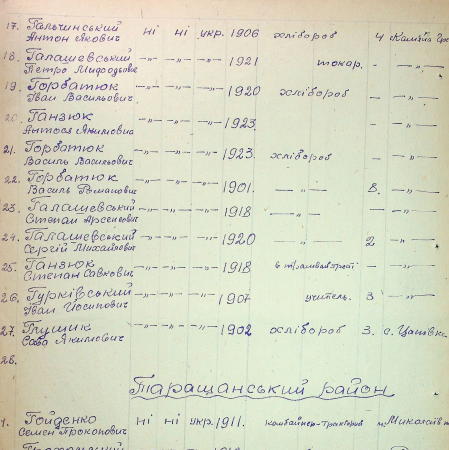 17. Гальчинський ні ні укр. 1906 хлібороб 4 Кам'яна
Антон Якович
18. Галашевський —„— —„— —„— 1921 токар. - —„—
Петро Мифодьович
19. Горбатюк —„— —„— —„— 1920 хлібороб - —„—
Іван Васильович
20. Ганзюк —„— —„— —„— 1923. - —„—
Антося Якимовна
21. Горбатюк —„— —„— —„— 1923. хлібороб - —„—
Василь Васильович
22. Горбатюк —„— —„— —„— 1901. —„— 8. —„—
Василь Романович
23. Галашевський —„— —„— —„— 1918 —„— - —„—
Степан Арсенович
24. Галашевський —„— —„— —„— 1920 —„— 2 —„—
Сергій Михайлович
25. Ганзюк —„— —„— —„— 1918 - —„—
Степан Савкович
26. Гурківський —„— —„— —„— 1907 учитель. 3 —„—
Іван Йосипович
27. Глущик —„— —„— —„— 1902 хлібороб 3. с.
Сава Якимович
28.
Таращанський район
1. Гойденко ні ні укр. 1911. комбайнер-тракторист
Семен Прокопович